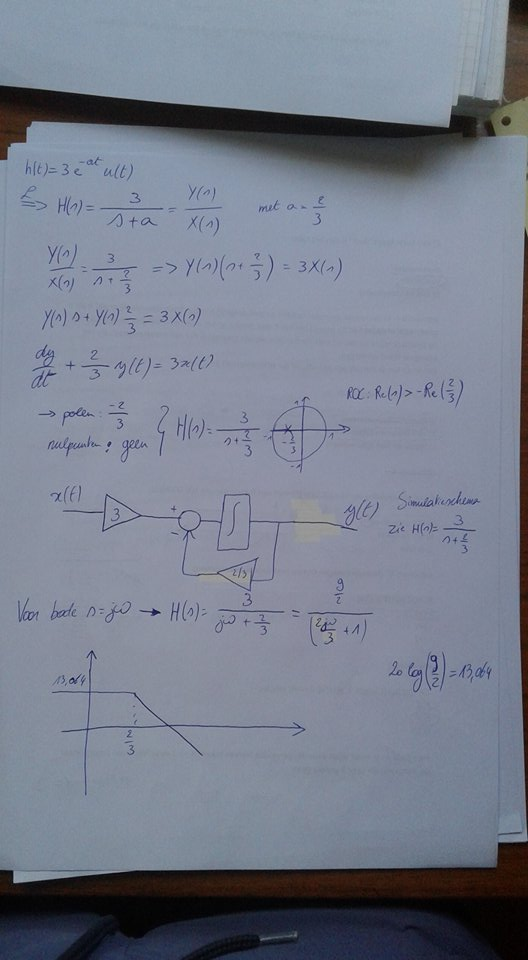 h(t) = 3 e^{-at} u(t)
ℒ ⇒ H(s) = 3/(s + a) = Y(s)/X(s) met a = 2/3
Y(s)/X(s) = 3/(s + 2/3) => Y(s)(s + 2/3) = 3X(s)
Y(s) s + Y(s) 2/3 = 3X(s)
dy/dt + 2/3 y(t) = 3x(t)
→ polen: -2/3
nulpunten: geen
H(s) = 3/(s + 2/3)
1
-1 -2/3 1
-1
ROC: Re(s) > -Re(2/3)
x(t) 3 + - ∫ 2/3 y(t)
Simulatieschema
zie H(s) = 3/(s + 2/3)
Voor bode s = jω → H(s) = 3/(jω + 2/3) = (9/2)/(2jω/3 + 1)
20 log(9/2) = 13,064
13,064
2/3